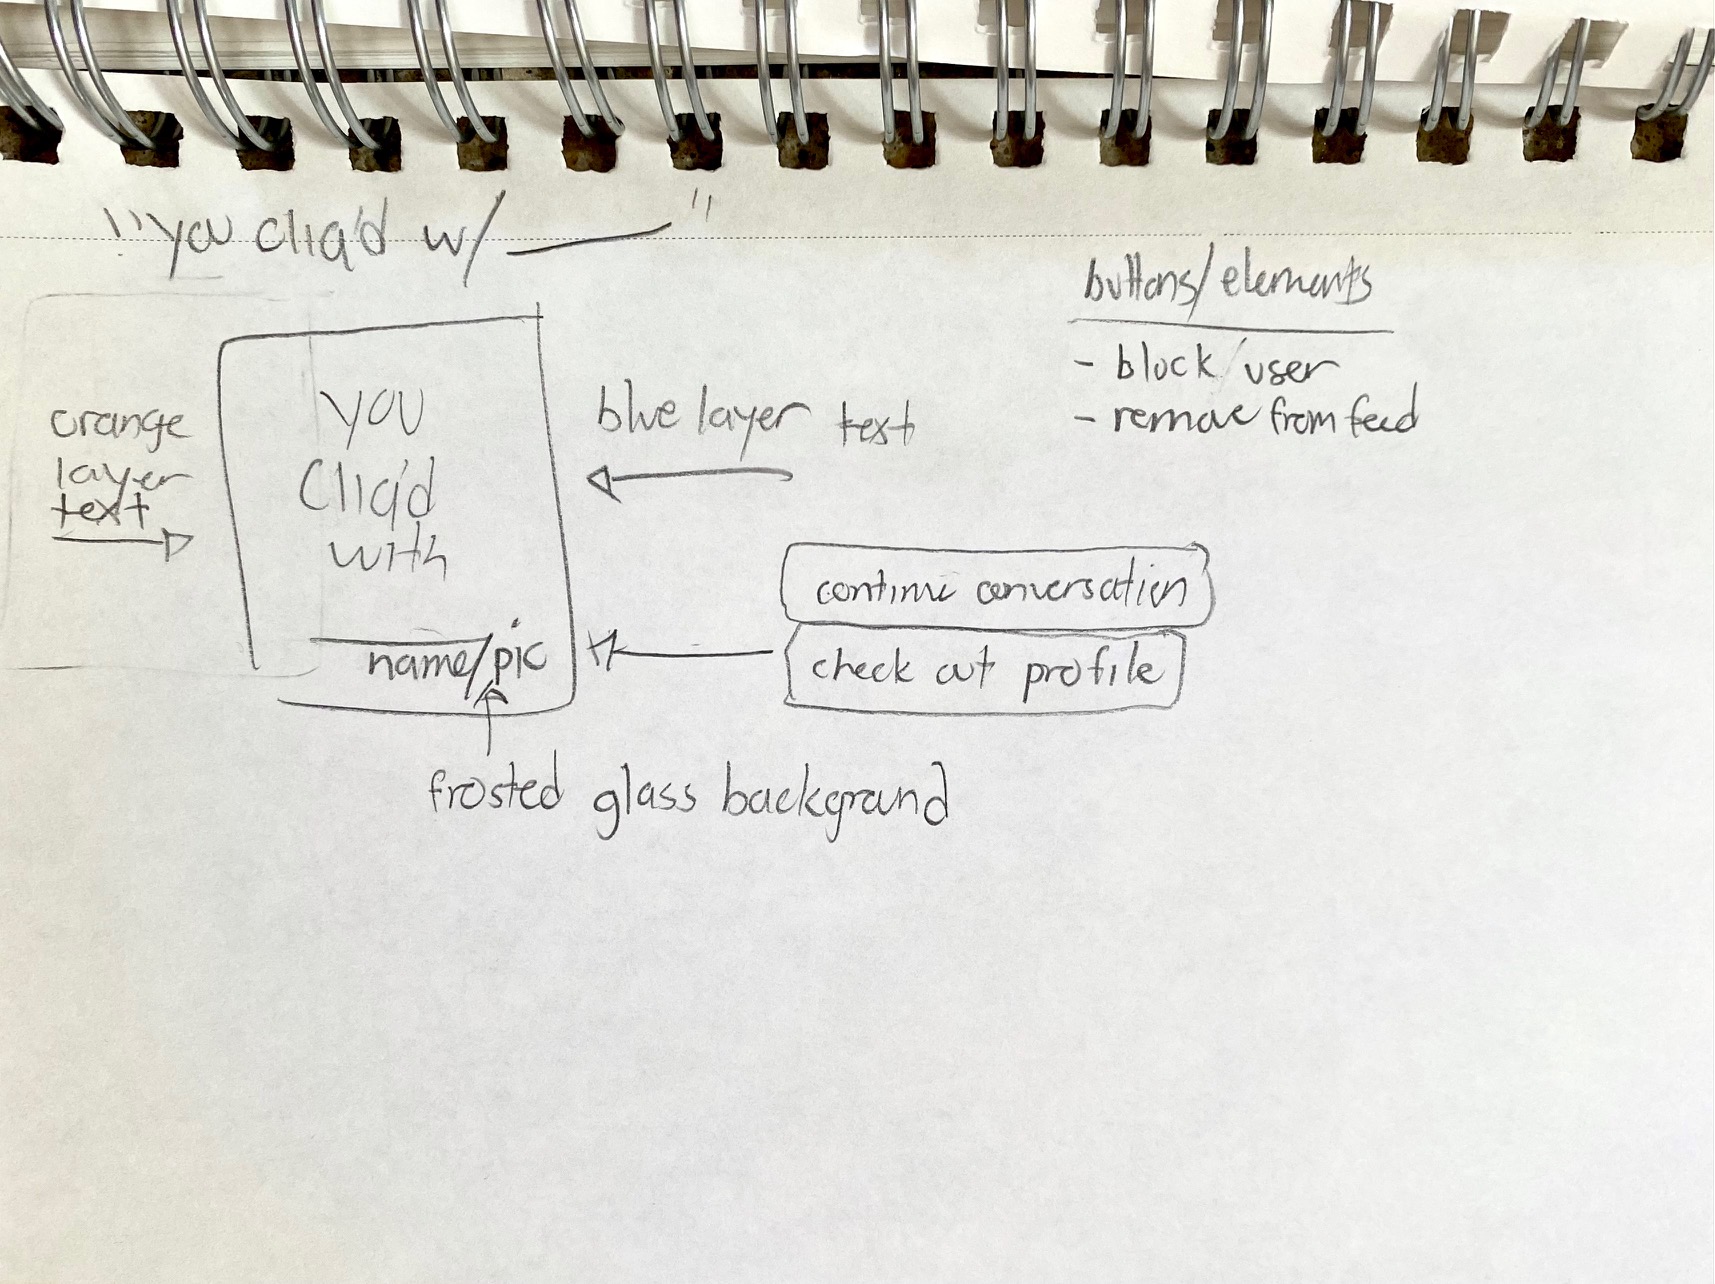 "you cliq'd w/ ____"
buttons/elements
- block user
- remove from feed
orange
layer
text
you
Cliq'd
with
name/pic
blue layer text
continue conversation
check out profile
frosted glass background